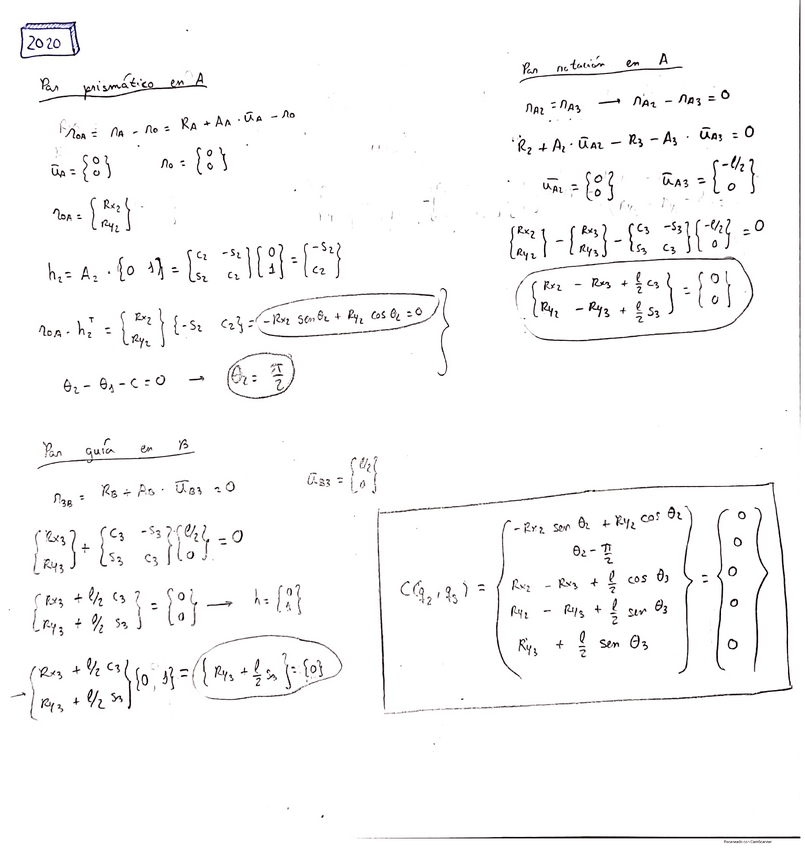 2020
Par prismático en A
r₀A = rA - r₀ = RA + AA · ūA - r₀
ūA = {0 0}   r₀ = {0 0}
r₀A = {Rx2 Ry2}
h₂ = A₂ · {0 1} = [c₂ -s₂ s₂ c₂] {0 1} = {-s₂ c₂}
r₀A · h₂ᵀ = {Rx2 Ry2} {-s₂ c₂} = -Rx2 senθ₂ + Ry2 cosθ₂ = 0
θ₂ - θ₁ - c = 0 → θ₂ = π/2
Par rotación en A
rA2 = rA3 → rA2 - rA3 = 0
R₂ + A₂ · ūA2 - R₃ - A₃ · ūA3 = 0
ūA2 = {0 0}   ūA3 = {-ℓ/2 0}
{Rx2 Ry2} - {Rx3 Ry3} - [c₃ -s₃ s₃ c₃] {-ℓ/2 0} = 0
{Rx2 - Rx3 + ℓ/2 c₃
Ry2 - Ry3 + ℓ/2 s₃} = {0 0}
Par guía en B
r3B = RB + AB · ūB3 = 0   ūB3 = {ℓ/2 0}
{Rx3 Ry3} + [c₃ -s₃ s₃ c₃] {ℓ/2 0} = 0
{Rx3 + ℓ/2 c₃
Ry3 + ℓ/2 s₃} = {0 0} → h = {0 1}
→ {Rx3 + ℓ/2 c₃
Ry3 + ℓ/2 s₃} {0, 1} = {Ry3 + ℓ/2 s₃} = {0}
C(q₂, q₃) = {-Rx2 sen θ₂ + Ry2 cos θ₂
θ₂ - π/2
Rx2 - Rx3 + ℓ/2 cos θ₃
Ry2 - Ry3 + ℓ/2 sen θ₃
Ry3 + ℓ/2 sen θ₃} = {0 0 0 0 0}
Escaneado con CamScanner